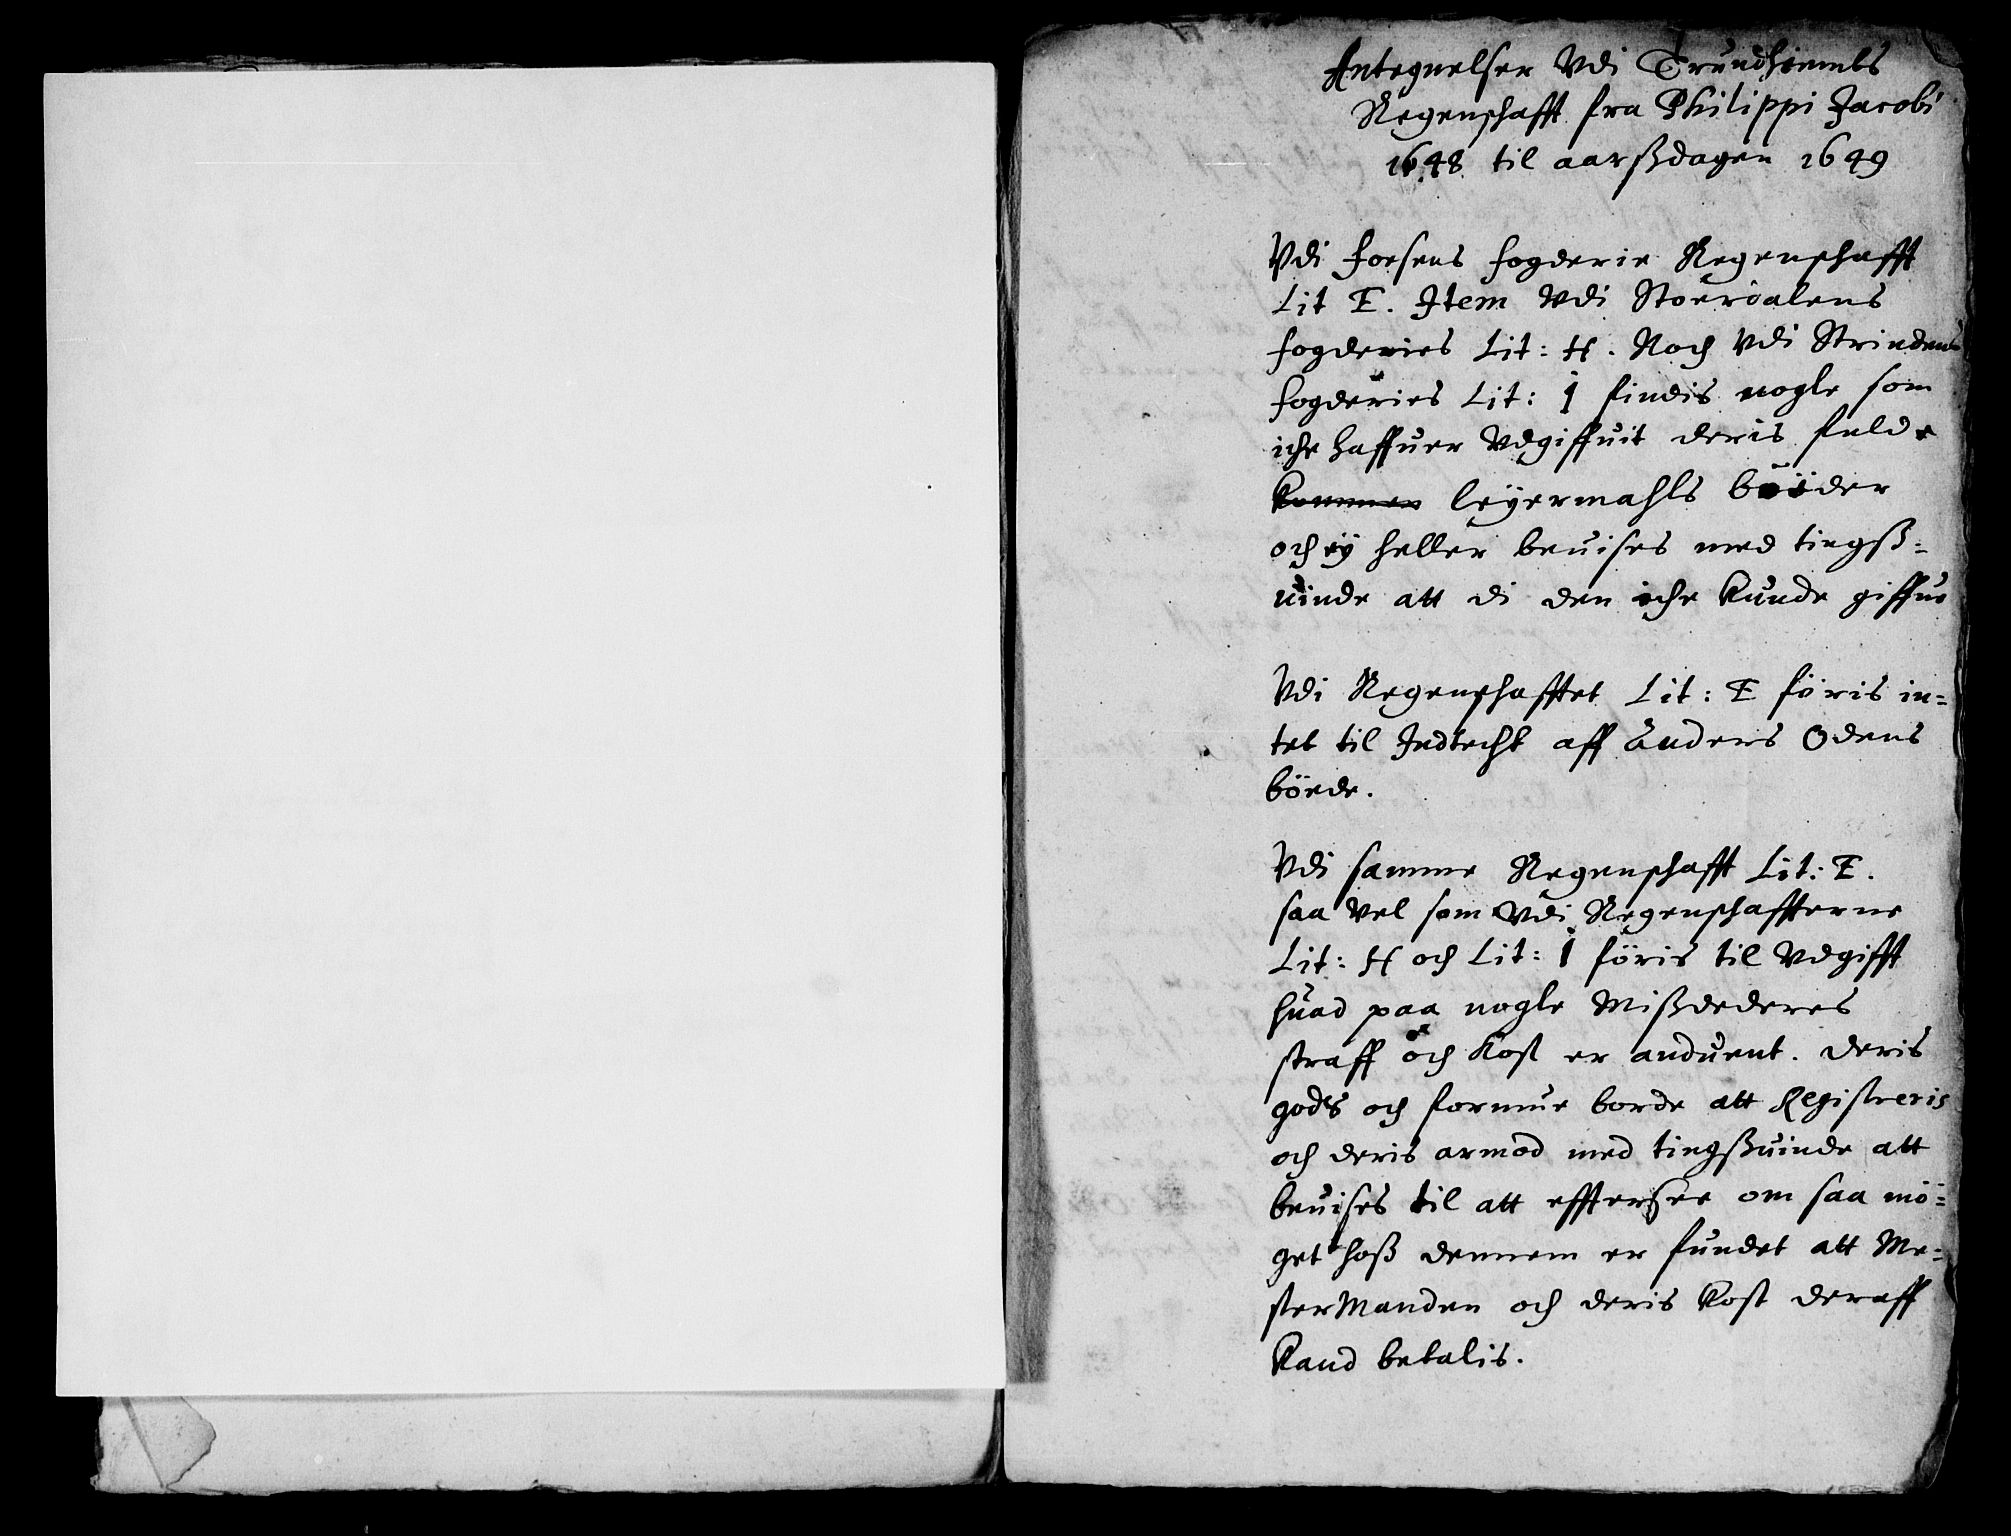 Antegnelser Vdi Trundhiembs
Regenschafft fra Philippi Jacobi
1648 til aarßdagen 1649
Vdi Foesens fogderie Regenschafft
Lit E. Item Vdi Stoerdalens
fogderies Lit: H. Noch Vdi Strindens
fogderies Lit: I findis nogle som
iche haffuer Vdgiffuit deris fulde
kommen leÿermahls böder
och eÿ heller beuises med tingß=
uinde att di den iche kunde giffue
Vdi Regenschafftet Lit: E föris in=
tet til Indtecht aff Anders Odens
böede.
Vdi samme Regenschafft Lit: E.
saa Vel som Vdi Regenschaffterne
Lit: H och Lit: I föris til Vdgifft
huad paa nogle Mißdederes
straff och kost er anduent. deris
gods och formue borde att Registreris
och deris armod med tingßuinde att
beuises til att efftersee om saa mö=
get hoß dennem er fundet att Me=
sterManden och deris kost deraff
kand betalis.